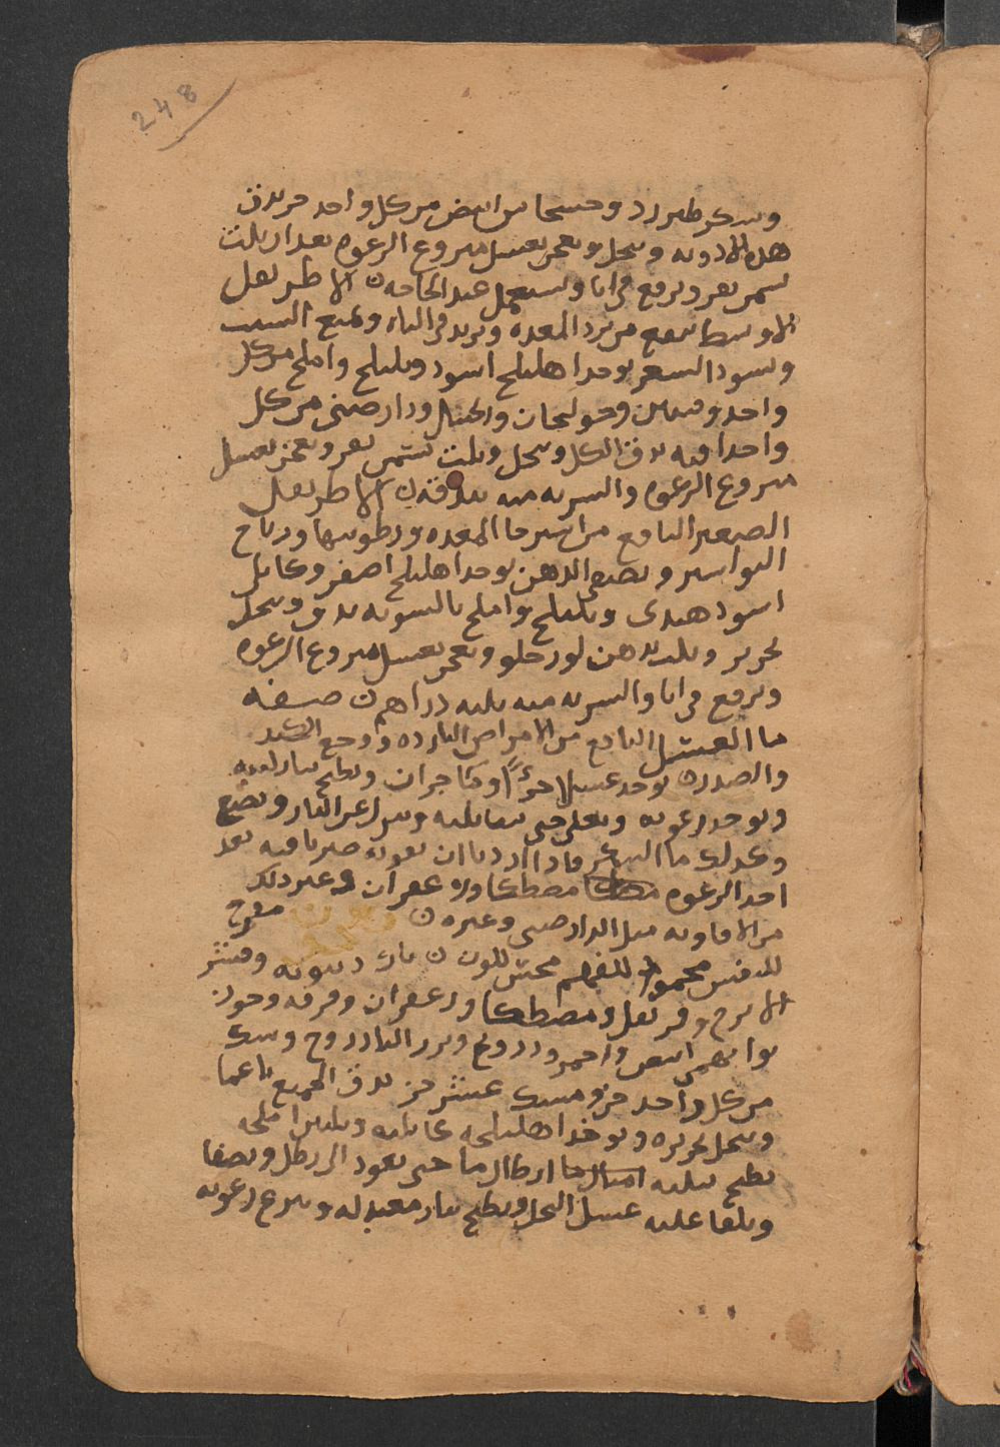 248
وسكر طبرزد وخشخاش ابيض من كل واحد جزء يدق
هذه الادويه وينخل ويعجن بعسل منزوع الرغوه بعد ان يلت
بسمن بقر ويرفع في انا ويستعمل عند الحاجه ن الاطريفل
الاوسط ينفع من برد المعده ويزيد في الباه ويمنع الشيب
ويسود الشعر يوخذ اهليلج اسود وبليلج واملج من كل
واحد وخولنجان ودار صيني من كل
واحد اوقيه يدق الكل وينخل ويلت بسمن بقر ويعجن بعسل
منزوع الرغوه والشربه منه بندقه ن الاطريفل
الصغير النافع من استرخا المعده ورطوبتها ورياح
البواسير ويصفي الذهن يوخذ اهليلج اصفر وكابلي
اسود هندي وبليلج واملج بالسويه يدق وينخل
بحرير ويلت بدهن لوز حلو ويعجن بعسل منزوع الرغوه
ويرفع في انا والشربه منه ثلثه دراهم ن صفة
ما العسل النافع من الامراض البارده و وجع الكبد
والصدر ن يوخذ عسل جزءًا وما جزان ويطبخ بنار لينه
ويوخذ رغوته ويغلى حتى يبقا ثلثه وينزل عن النار ويصنع
وكذلك ما السكر فاذا اردنا ان نقويه صيرنا فيه بعد
اخذ الرغوه مصطكا وزعفران وغير ذلك
من الافاويه مثل الدار صيني وغيره ن مفرح
للنفس محمود للفهم محسن للون ن بادرنبويه وقشر
الاترج وقرنفل ومصطكا وزعفران وقرفه وجوز
بوا بهمن ابيض واحمر ودرونج وبزر البادروج وسك
من كل واحد جزو مسك عشر جز يدق الجميع ناعما
وينخل بحريره ويوخذ اهليلجه كابليه املجه
يطبخ بثلثه ارطال ما حتى يعود الى رطل ونصفا
ويلقا عليه عسل النحل ويطبخ بنار معتدله وينزع رغوته